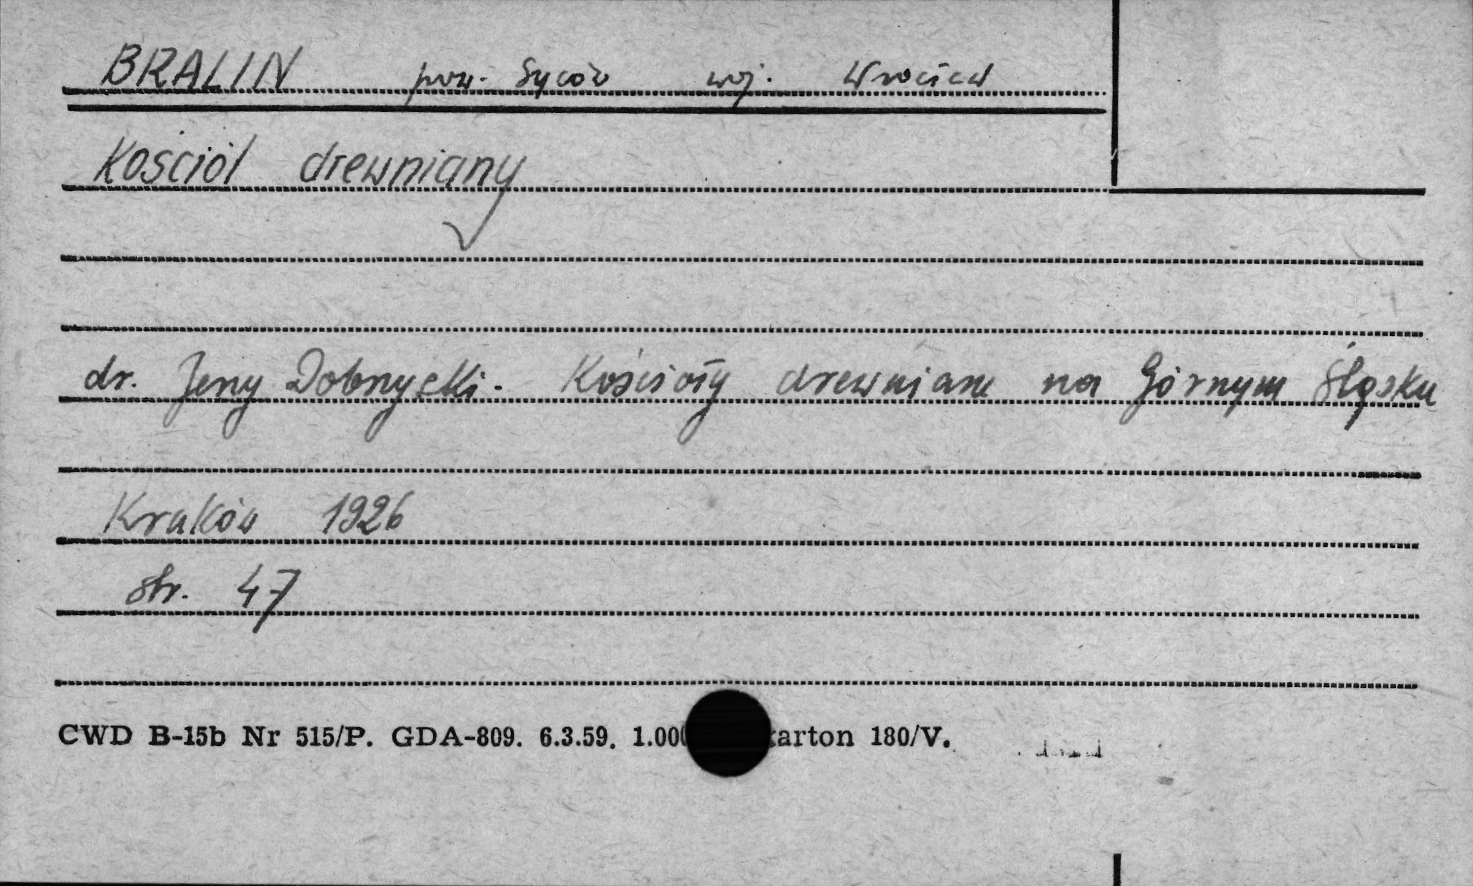 BRALIN pow. Syców woj. Wrocław
Kościół drewniany
dr. Jerzy Dobrzycki. Kościoły drewniane na Górnym Śląsku
Kraków 1926
str. 47
CWD B-15b Nr 515/P. GDA-809. 6.3.59. 1.00 arton 180/V.